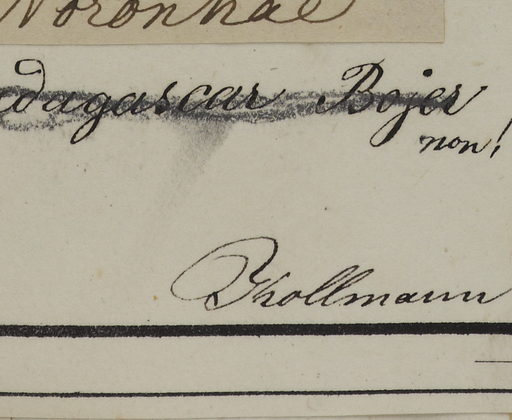 Noronhae
adagascar Bojer
non!
Thollmann